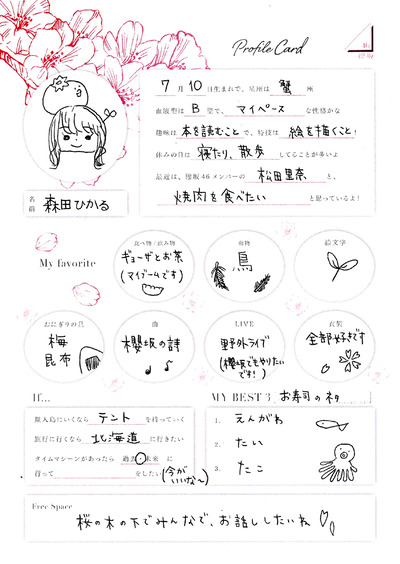 Profile Card
7月10日生まれで、星座は 蟹 座
血液型は B 型で、マイペース な性格かな
趣味は 本を読むこと で、特技は 絵を描くこと!
休みの日は 寝たり、散歩 してることが多いよ
最近は、櫻坂46メンバーの 松田里奈 と、
焼肉を食べたい と思っているよ!
名前 森田ひかる
My favorite
食べ物/飲み物
ギョーザとお茶
(マイブームです)
動物
鳥
絵文字
おにぎりの具
梅
昆布
曲
櫻坂の詩
LIVE
野外ライブ
(櫻坂でもやりたいです!)
衣装
全部好きです
If...
無人島にいくなら テント を持っていく
旅行に行くなら 北海道 に行きたい
タイムマシーンがあったら 過去・未来 に
行って をしたい (今がいいな~)
MY BEST 3 お寿司のネタ
1. えんがわ
2. たい
3. たこ
Free Space
桜の木の下でみんなで、お話ししたいね